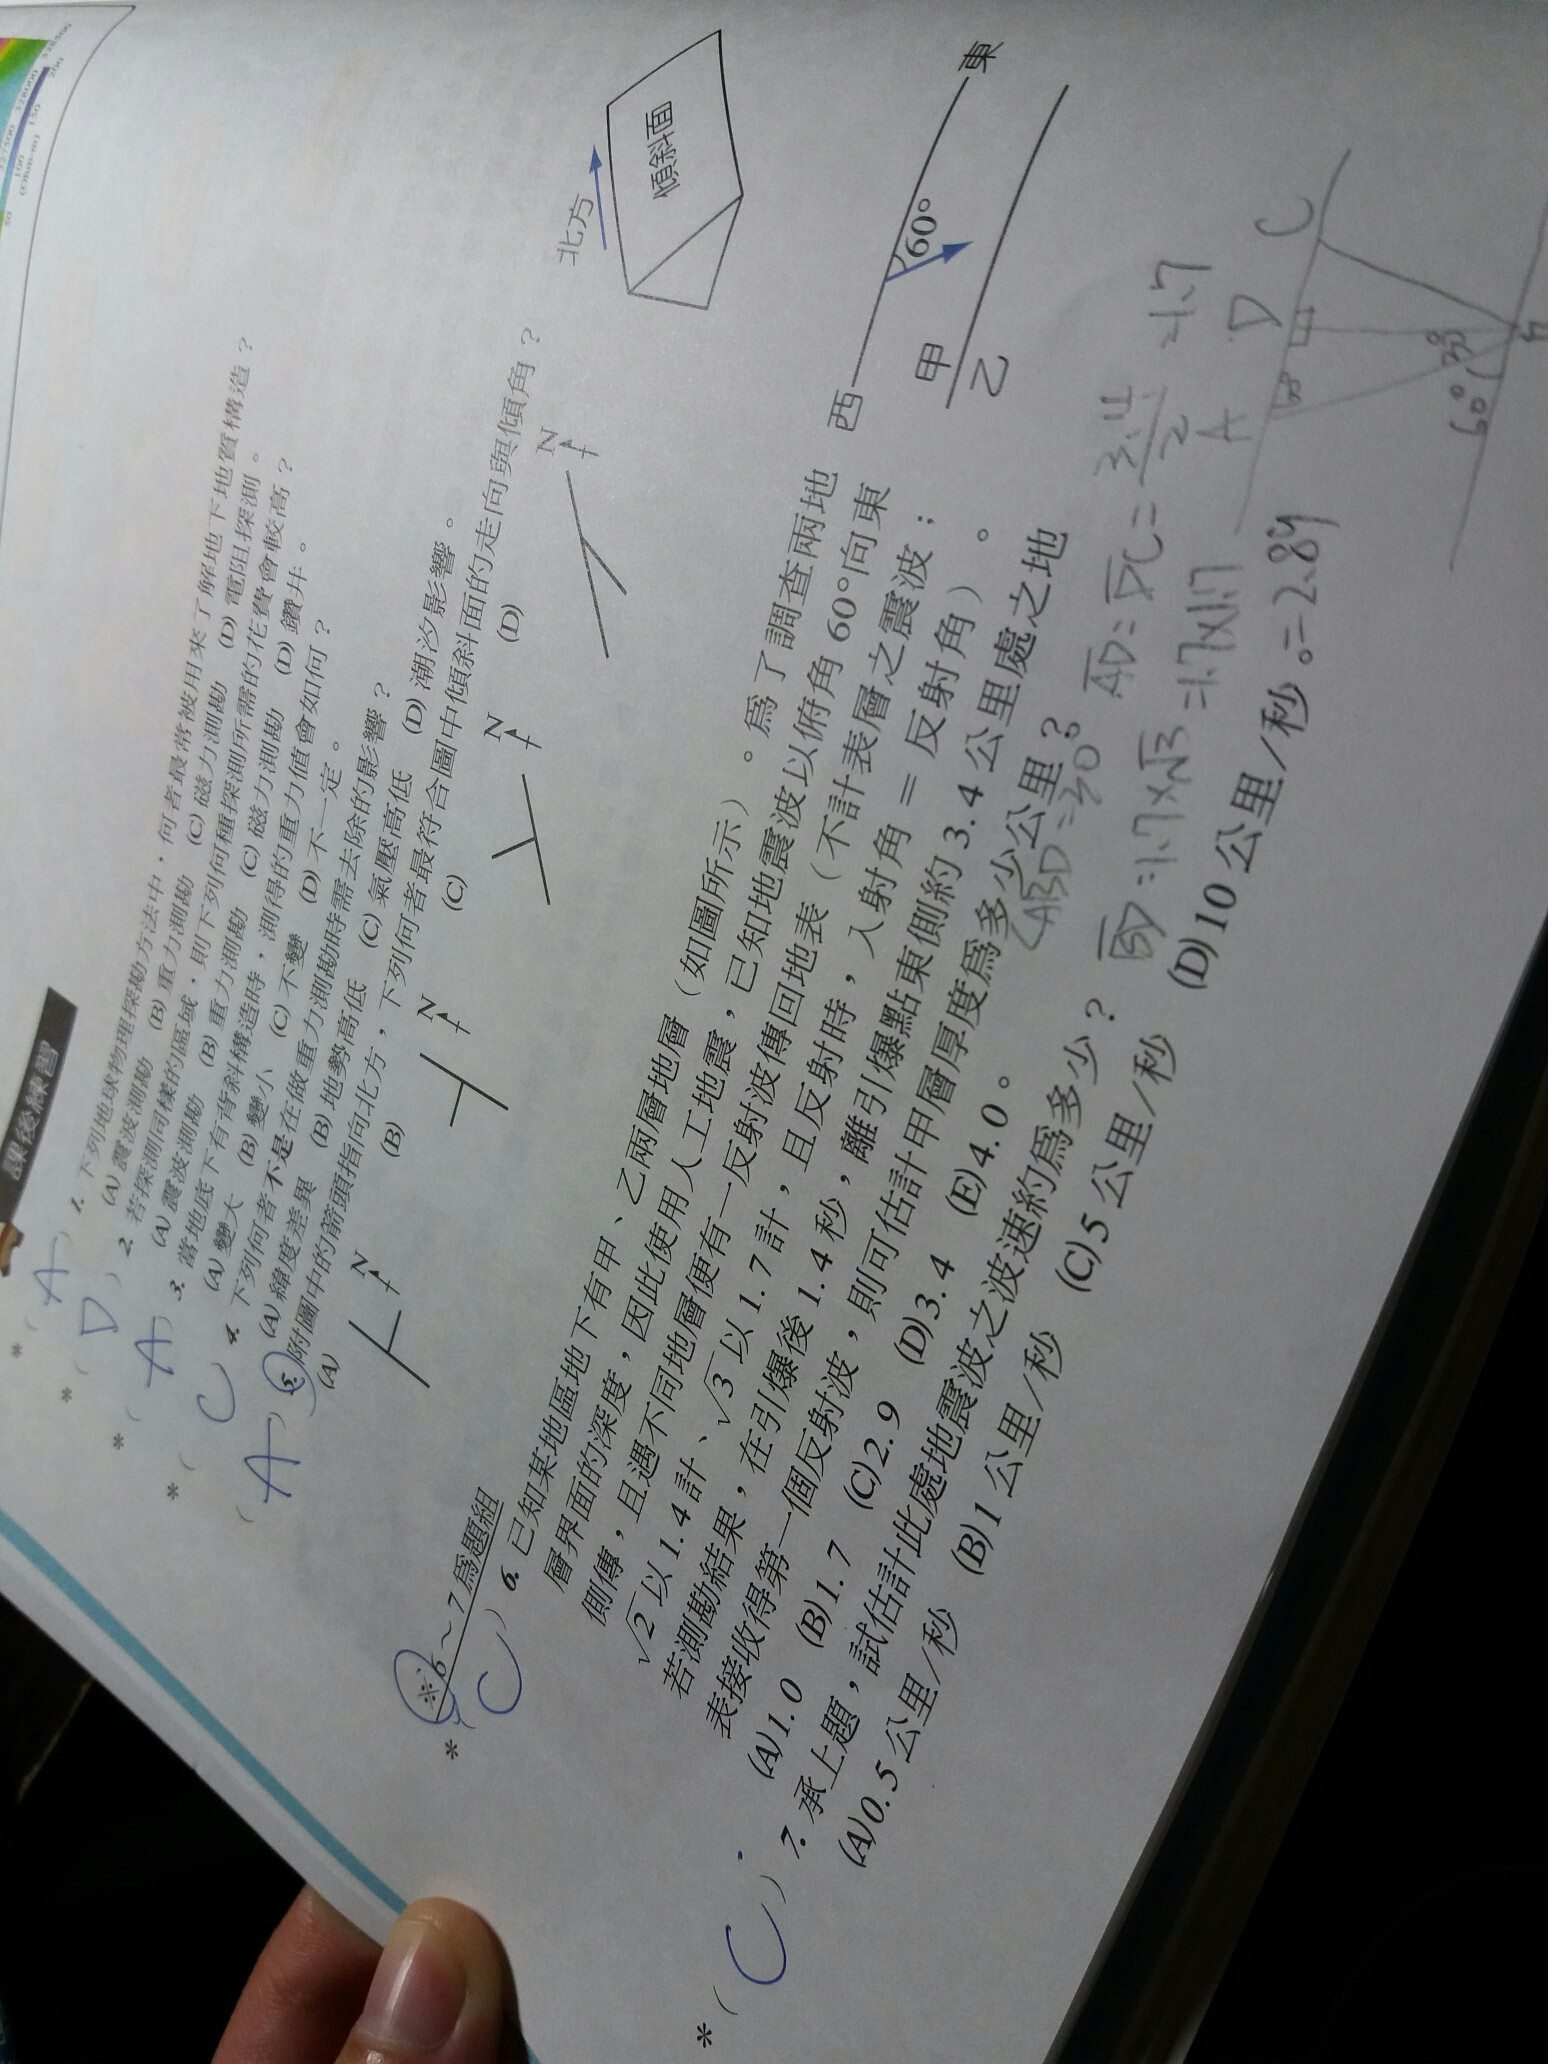 327500 328000 328500
50 100 150 200
(Ohm-m)
課後練習
* ( A ) 1. 下列地球物理探勘方法中，何者最常被用來了解地下地質構造？
(A) 震波測勘 (B) 重力測勘 (C) 磁力測勘 (D) 電阻探測。
* ( D ) 2. 若探測同樣的區域，則下列何種探測所需的花費會較高？
(A) 震波測勘 (B) 重力測勘 (C) 磁力測勘 (D) 鑽井。
* ( A ) 3. 當地底下有背斜構造時，測得的重力值會如何？
(A) 變大 (B) 變小 (C) 不變 (D) 不一定。
* ( C ) 4. 下列何者不是在做重力測勘時需去除的影響？
(A) 緯度差異 (B) 地勢高低 (C) 氣壓高低 (D) 潮汐影響。
( A ) 5. 附圖中的箭頭指向北方，下列何者最符合圖中傾斜面的走向與傾角？
(A) (B) (C) (D)
N N N N
北方
傾斜面
※6～7爲題組
* ( C ) 6. 已知某地區地下有甲、乙兩層地層（如圖所示）。爲了調查兩地
層界面的深度，因此使用人工地震，已知地震波以俯角 60°向東
側傳，且遇不同地層便有一反射波傳回地表（不計表層之震波；
√2 以 1.4 計、√3 以 1.7 計，且反射時，入射角 = 反射角）。
若測勘結果，在引爆後 1.4 秒，離引爆點東側約 3.4 公里處之地
表接收得第一個反射波，則可估計甲層厚度爲多少公里？
(A)1.0 (B)1.7 (C)2.9 (D)3.4 (E)4.0。
西 東
60°
甲
乙
* ( C ) 7. 承上題，試估計此處地震波之波速約爲多少？
(A)0.5 公里/秒 (B)1 公里/秒 (C)5 公里/秒 (D)10 公里/秒。
∠ABD=30° AD=DC=3.4/2=1.7
BD=1.7×√3=1.7×1.7
=2.89
A D C
60° 30°